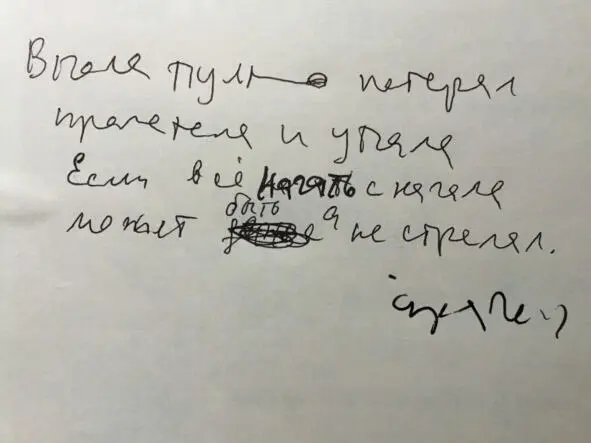 В поле пулю потерял
пролетела и упала
Если всё начать с начала
может быть я не стрелял.